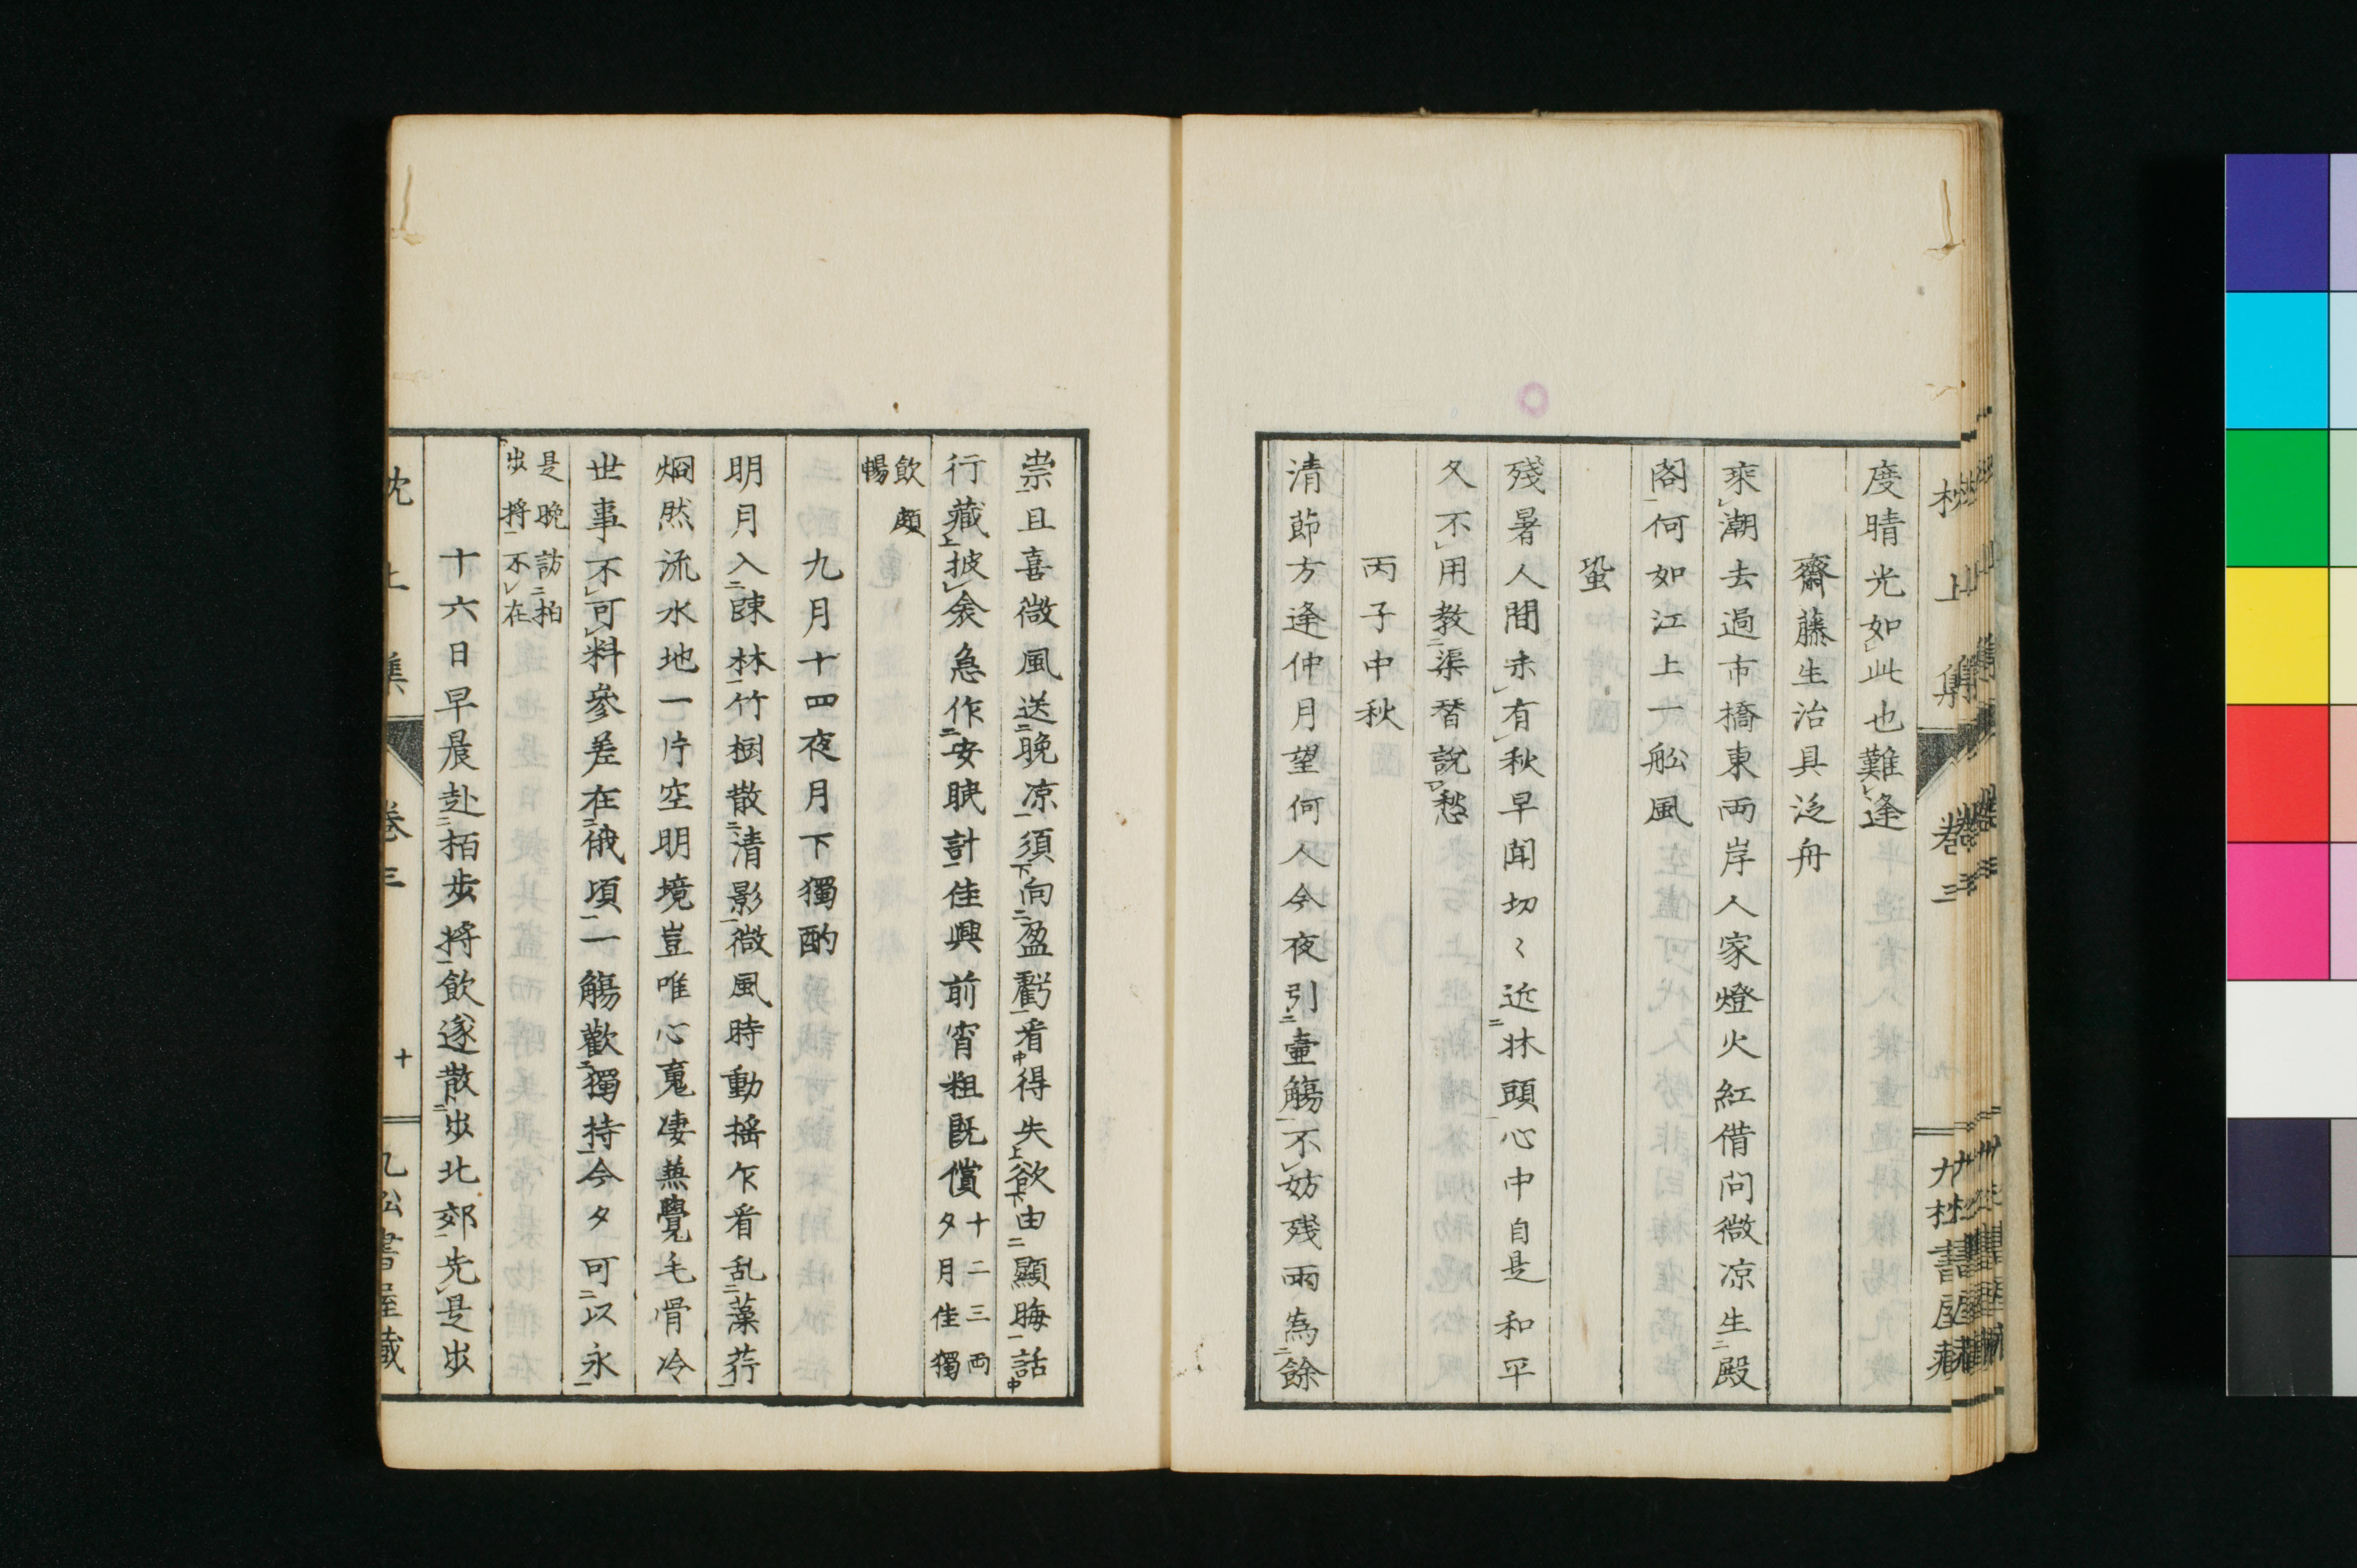 度晴光如此也難逢
齋藤生治具泛舟
乘潮去過市橋東兩岸人家燈火紅借問微凉生殿
閣何如江上一舩風
蛩
殘暑人間未有秋早聞切〻近牀頭心中自是和平
久不用教渠替說愁
丙子中秋
清節方逢仲月望何人今夜引壷觴不妨残雨為餘
祟且喜微風送晩凉須向盈虧看得失欲由顯晦話
行藏披衾急作安眠計佳興前宵粗既償十二三兩夕月佳獨
飲頗暢
九月十四夜月下獨酌
明月入疎林竹樹散清影微風時動搖乍看乱藻荇
烱然流水地一片空明境豈唯心寬凄無覺毛骨冷
世事不可料參差在俄頃一觴歡獨持今夕可以永
是晩訪二柏歩將不在
十六日早晨赴栢歩將飲遂散歩北郊先是歩
枕上集
卷三
十
九松書屋藏